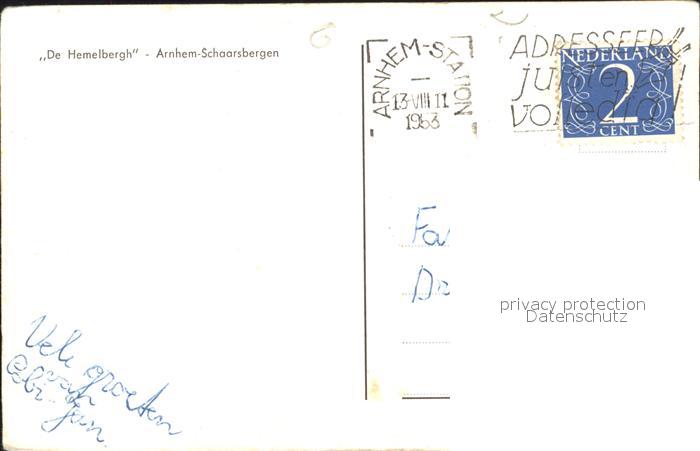 „De Hemelbergh" - Arnhem-Schaarsbergen
ARNHEM-STATION
13·VIII 11
1953
ADRESSEER
juist en
volledig!
NEDERLAND
2
CENT
Fa
Dr
privacy protection
Datenschutz
Vele groeten
van